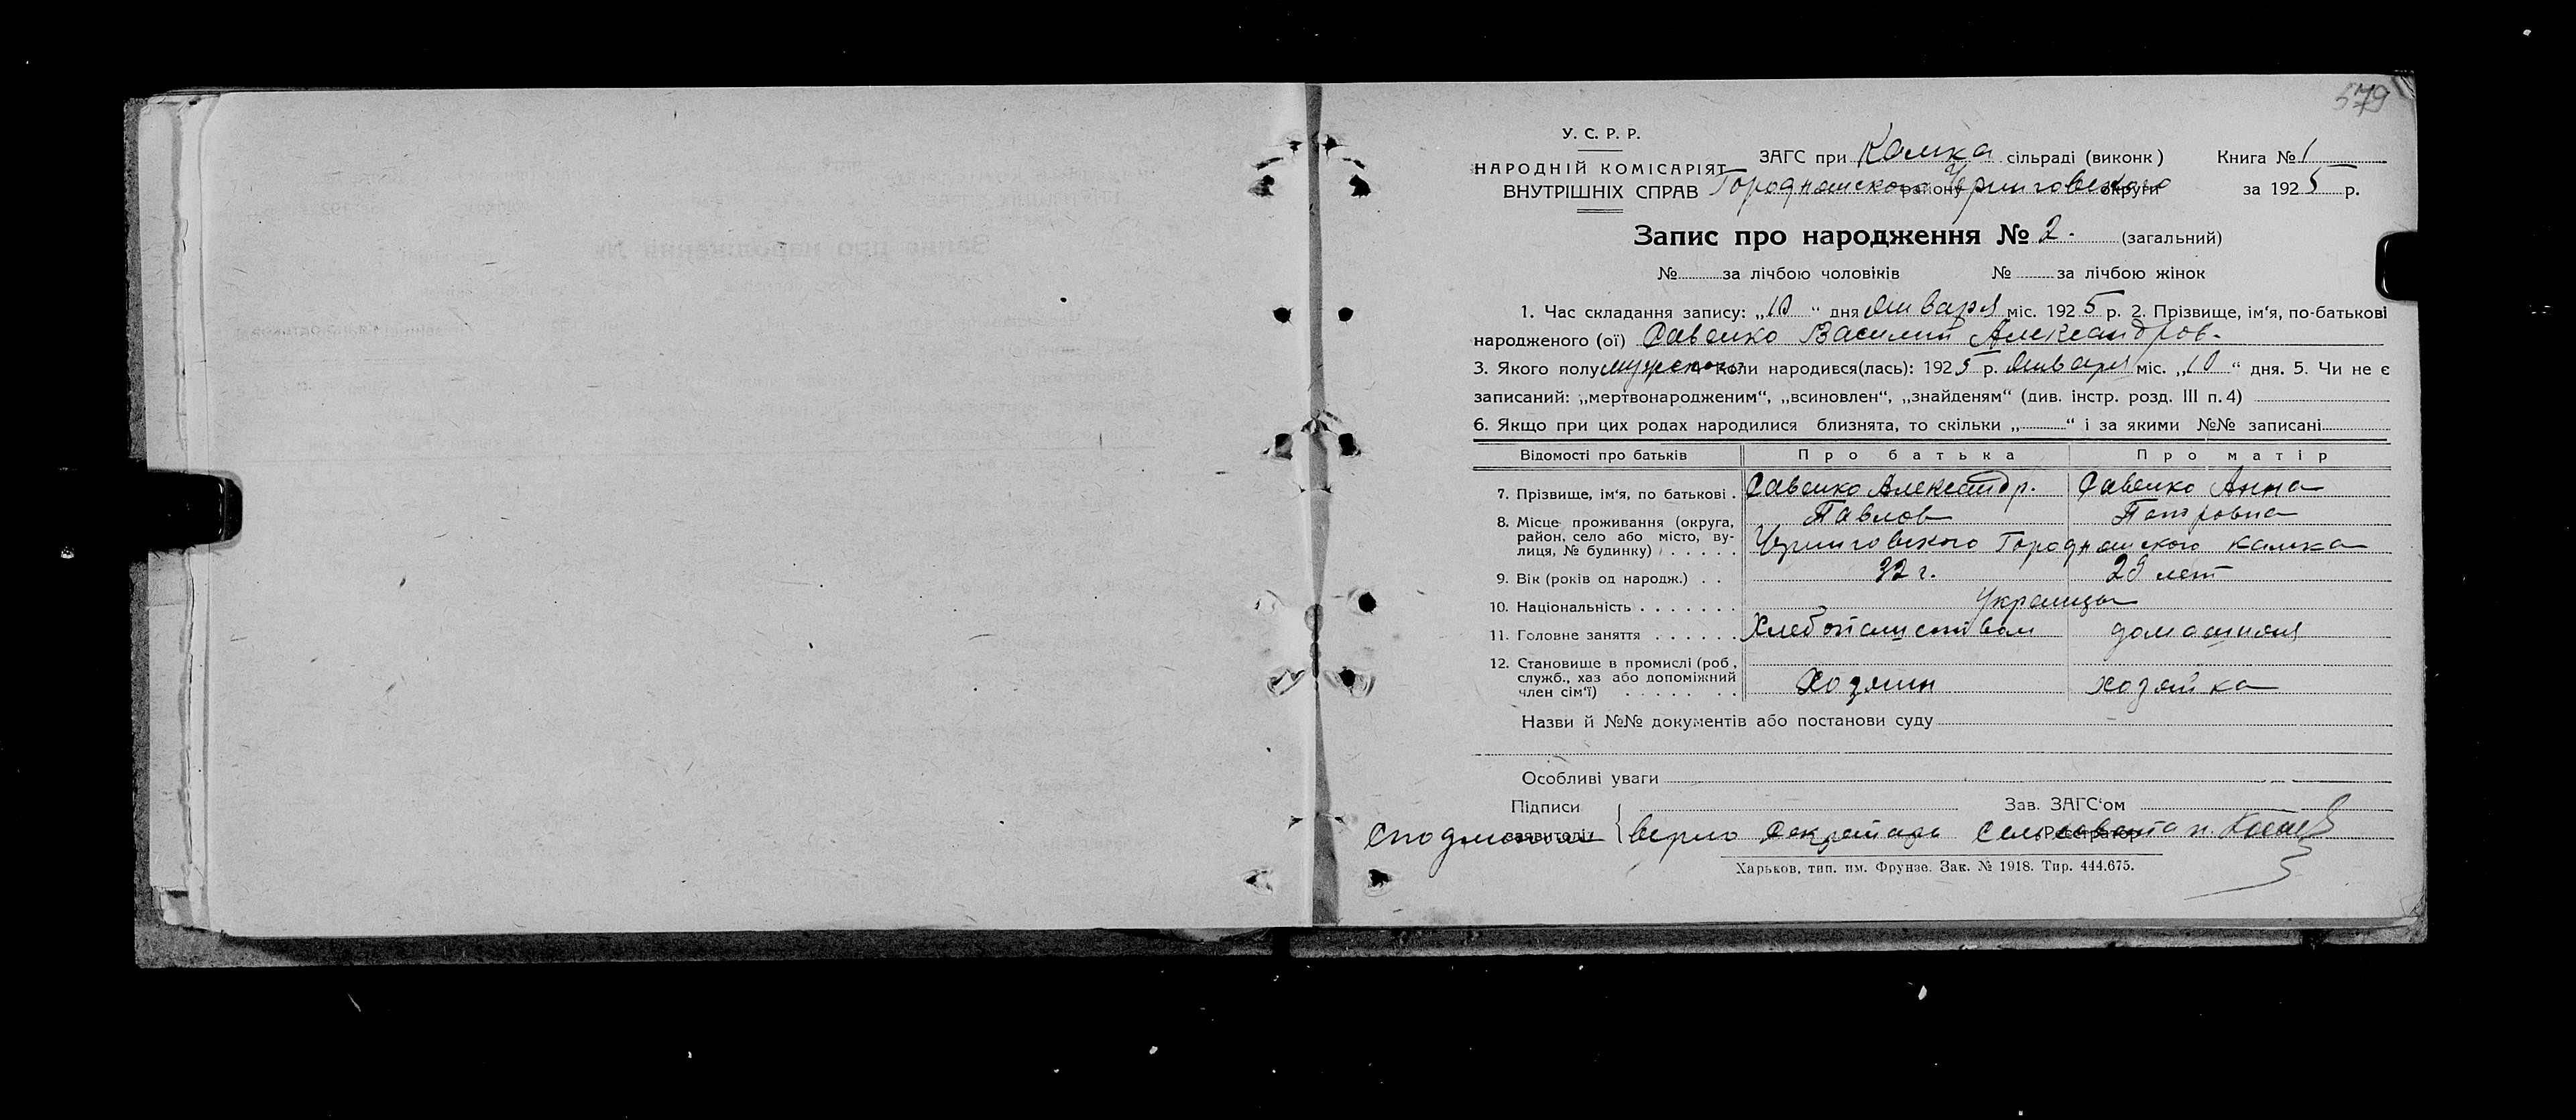 579
У. С. Р. Р.
НАРОДНІЙ КОМІСАРІЯТ
ВНУТРІШНІХ СПРАВ
ЗАГС при Камка сільраді (виконк) Книга № 1
Городнянского району Черниговского округи за 1925 р.
Запис про народження № 2. (загальний)
№ за лічбою чоловіків № за лічбою жінок
1. Час складання запису: „10“ дня Января міс. 1925 р. 2. Прізвище, ім‘я, по-батькові
народженого (ої) Савенко Василий Александров.
3. Якого полу мужского 4. Коли народився(лась): 1925 р. Января міс. „10“ дня. 5. Чи не є
записаний: „мертвонародженим“, „всиновлен“, „знайденям“ (див. інстр. розд. III п. 4)
6. Якщо при цих родах народилися близнята, то скільки „ “ і за якими №№ записані
Відомості про батьків Про батька Про матір
7. Прізвище, ім‘я, по батькові . Савенко Александр. Савенко Анна
Павлов Петровна
8. Місце проживання (округа,
район, село або місто, ву-
лиця, № будинку) . . . . . Черниговского Городнянского Камка
9. Вік (років од народж.) . . 32 г. 29 лет
10. Національність . . . . . . . Украинцы
11. Головне заняття . . . . . . Хлебопашеством домашняя
12. Становище в промислі (роб.,
служб., хаз або допоміжний
член сім‘ї) . . . . . . . Хозяин хозяйка
Назви й №№ документів або постанови суду
Особливі уваги
Підписи Зав. ЗАГС‘ом
заявителів: Реєстратор
С подлинным верно Секретарь Сельсовета
Харьков, тип. им. Фрунзе. Зак. № 1918. Тир. 444.675.